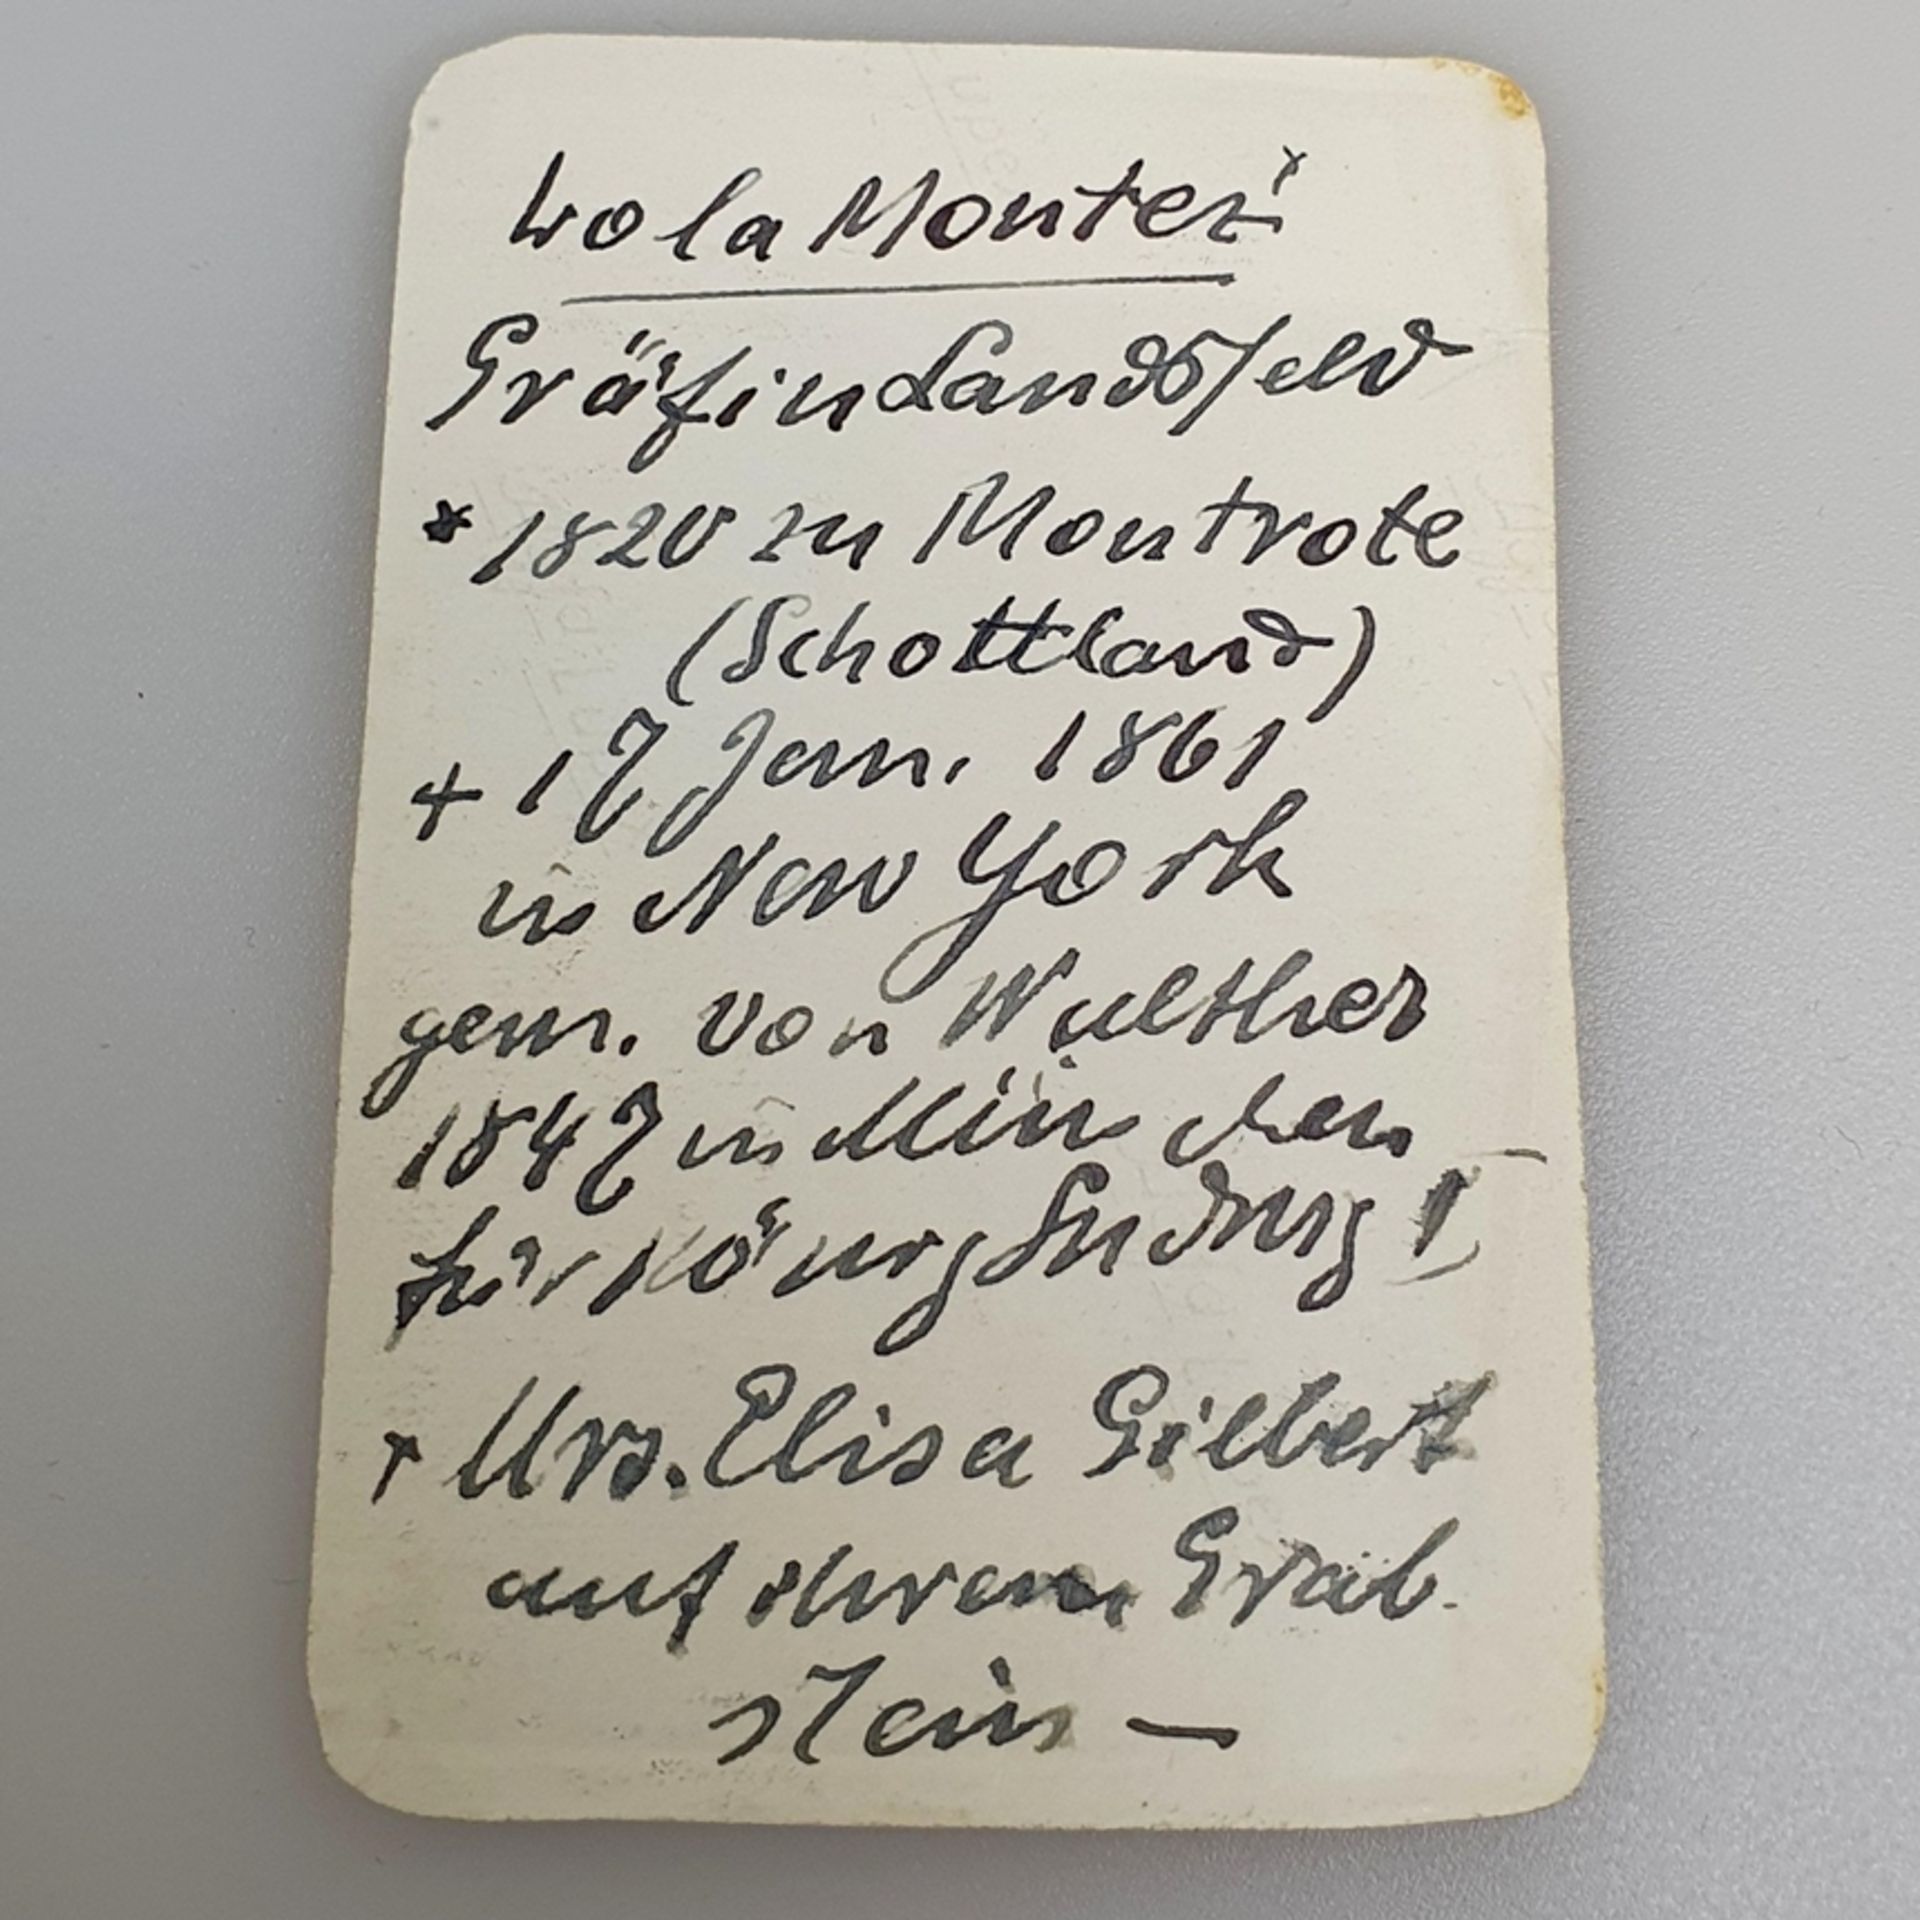 Lola Montez ×
Gräfin Landsfeld
* 1820 zu Montrote
(Schottland)
+ 17 Jan. 1861
in New York
gem. von Walther
1847 in München
für König Ludwig I
× Mrs. Elisa Gilbert
auf ihrem Grab-
stein —